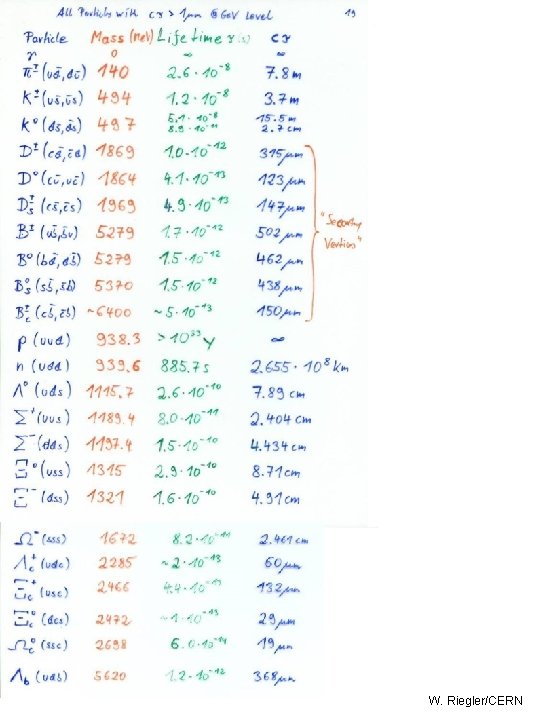 All Particles with cτ > 1μm @ GeV Level 19
Particle Mass (MeV) Life time τ (s) cτ
γ 0 ∞ ∞
π± (ud̄, dū) 140 2.6·10⁻⁸ 7.8 m
K± (us̄, ūs) 494 1.2·10⁻⁸ 3.7 m
K⁰ (ds̄, d̄s) 497 5.1·10⁻⁸ 15.5 m
8.9·10⁻¹¹ 2.7 cm
D± (cd̄, c̄d) 1869 1.0·10⁻¹² 315 μm
D⁰ (cū, uc̄) 1864 4.1·10⁻¹³ 123 μm
Ds± (cs̄, c̄s) 1969 4.9·10⁻¹³ 147 μm
B± (ub̄, b̄u) 5279 1.7·10⁻¹² 502 μm
"Secondary
Vertices"
B⁰ (bd̄, db̄) 5279 1.5·10⁻¹² 462 μm
Bs⁰ (sb̄, s̄b) 5370 1.5·10⁻¹² 438 μm
Bc± (cb̄, c̄b) ~6400 ~5·10⁻¹³ 150 μm
p (uud) 938.3 > 10³³ y ∞
n (udd) 939.6 885.7 s 2.655·10⁸ km
Λ⁰ (uds) 1115.7 2.6·10⁻¹⁰ 7.89 cm
Σ⁺ (uus) 1189.4 8.0·10⁻¹¹ 2.404 cm
Σ⁻ (dds) 1197.4 1.5·10⁻¹⁰ 4.434 cm
Ξ⁰ (uss) 1315 2.9·10⁻¹⁰ 8.71 cm
Ξ⁻ (dss) 1321 1.6·10⁻¹⁰ 4.91 cm
Ω⁻ (sss) 1672 8.2·10⁻¹¹ 2.461 cm
Λc⁺ (udc) 2285 ~2·10⁻¹³ 60 μm
Ξc⁺ (usc) 2466 4.4·10⁻¹³ 132 μm
Ξc⁰ (dcs) 2472 ~1·10⁻¹³ 29 μm
Ωc⁰ (ssc) 2698 6.0·10⁻¹⁴ 19 μm
Λb (udb) 5620 1.2·10⁻¹² 368 μm
W. Riegler/CERN